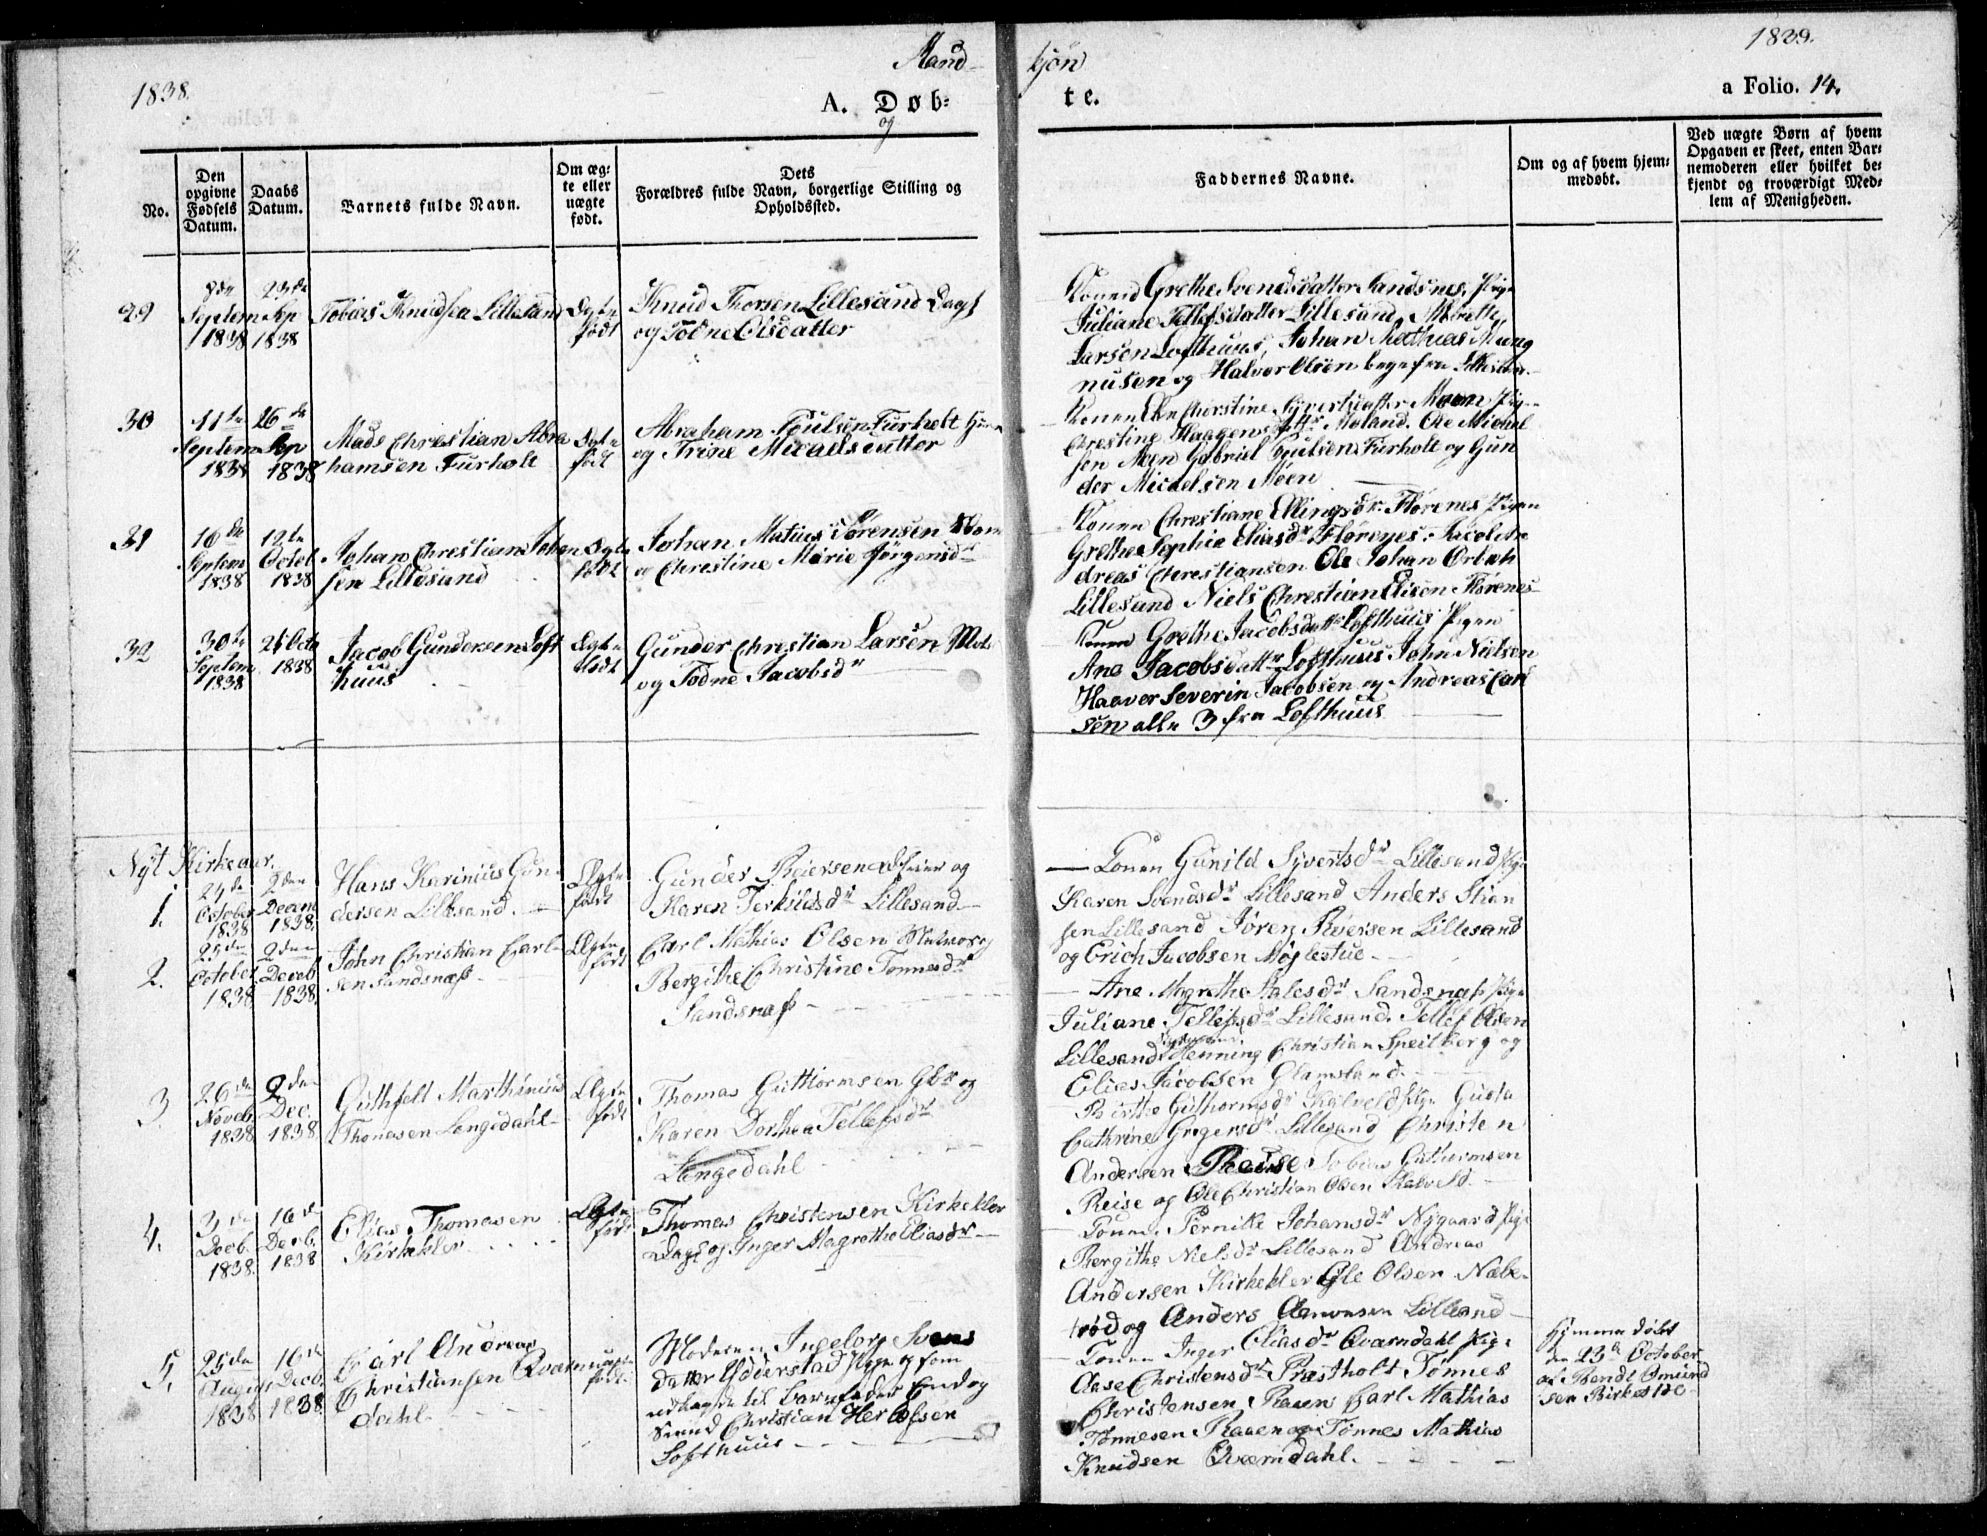 1838.
Mand-
kjøn
1839.
A. Døb-
te.
og
a Folio. 14.
No.
Den opgivne Fødsels Datum.
Daabs Datum.
Barnets fulde Navn.
Om ægte eller uægte født.
Dets Forældres fulde Navn, borgerlige Stilling og Opholdssted.
Faddernes Navne.
Om og af hvem hjemmedøbt.
Ved uægte Børn af hvem Opgaven er skeet, enten Barnemoderen eller hvilket bekjendt og troværdigt Medlem af Menigheden.
29
Septem 1838
23de Sep 1838
Tobias Knudsen Lillesand
Ægte født
Knud Thorsen Lillesand Dags
og Todne Olsdatter
Konen Grethe Svendsdatter Sandsnes, Pige
Juliane Tellefsdatter Lillesand, Merethe
Larsen Lofthuus, Johan Mathias Mang
nusen og Halvor Olsen begge fra Lillesand
30
11te Septem 1838
26de Sep 1838
Mads Christian Abra
hamsen Furholt
Ægte født
Abraham Poulsen Furholt
og Trine Micaelsdatter
Konen Else Thorstine Syvertsdatter Moen Pig
Christine Haagensdattr Moland. Ole Michel
sen Moen Gabriel Poulsen Furholt og Gun
der Micaelsen Moen
31
16de Septem 1838
12te Octob 1838
Johan Christian Johan
sen Lillesand
Ægte født
Johan Matias Sørensen
og Christine Marie Jørgensdr
Konen Christiane Ellingsdr. Florenes Pigen
Grethe Sophie Eliasdr Florenes. Jacob An
dreas Christiansen Ole Johan
Lillesand Niels Christian Elisen Florenes
32
30te Septem 1838
Octb 1838
Jacob Gundersen Loft
huus
Ægte født
Gunder Christian Larsen Mats
og Todne Jacobsdr
Konen Grethe Jacobsdattr Lofthuus Pigen
Ane Jacobsdattr Lofthuus John Nielsen
Haaver Severin Jacobsen og Andreas Carl
sen alle 3 fra Lofthuus
Nyt Kirkeaar.
1.
October 1838
2den Decem 1838.
Hans Karinius Gun
dersen Lillesand.
Ægte født
Gunder Reiersen og
Karen Terkildsdr Lillesand
Konen Gunild Syvertsdr Lillesand Pige
Karen Svendsdr Lillesand Anders Stian
sen Lillesand Jøren Reiersen Lillesand
og Erich Jacobsen Møglestue
2.
25de October 1838
2den Deceb 1838
John Christian Carl
sen Sandsnæs
Ægte født
Carl Mathias Olsen Matros og
Bergithe Christine Tønnesdr
Sandsnæs
Ane Magrethe Sandsnæs Pige
Juliane Tellefsdr Lillesand. Tellef Olsen
Lillesand Henning Christian Speilberg og
Elias Jacobsen Glamsland.
3.
26de Noveb 1838
2den Dec. 1838
Guthfelt Marthinius
Thomesen Lengedahl
Ægte født
Thomas Guttormsen Gbr og
Karen Dorthea Tellefsdr
Lengedahl
Birthe Guthormsdr Kalveld Pige Gusta
Cathrine Gregersdr Lillesand Christen
Andersen Reise Tobias Guthormsen
Reise og Ole Christian Olsen Kalveld
4.
3de Deceb. 1838
16de Decb. 1838
Elias Thomesen
Kirkekler
Ægte født
Thomas Christensen Kirkekler
Dags og Inger Magrethe Eliasdr
Konen Pernille Johansdr Nygaard Pige
Bergithe Nielsdr Lillesand Andreas
Andersen Kirkekler Ole Olsen Næbe
rød og Anders Lillesand
5.
25de August 1838
16de Decb. 1838
Carl Andreas
Christiansen Qværn
dahl
uægte født
Moderen Ingeborg Svens
datter Pige og som
udlagde til Barnefader
Christian Herlofsen
Lofthuus
Konen Inger Eliasdr Qværndahl Pige
Aase Christensdr Præstholt Tønnes
Christensen Raaen Carl Mathias
Tønnesen Raaen og Tønnes Mathias
Knudsen Qværndahl.
Hjemmedøbt
den 23de October
af Bendt Omund
sen Birkedal